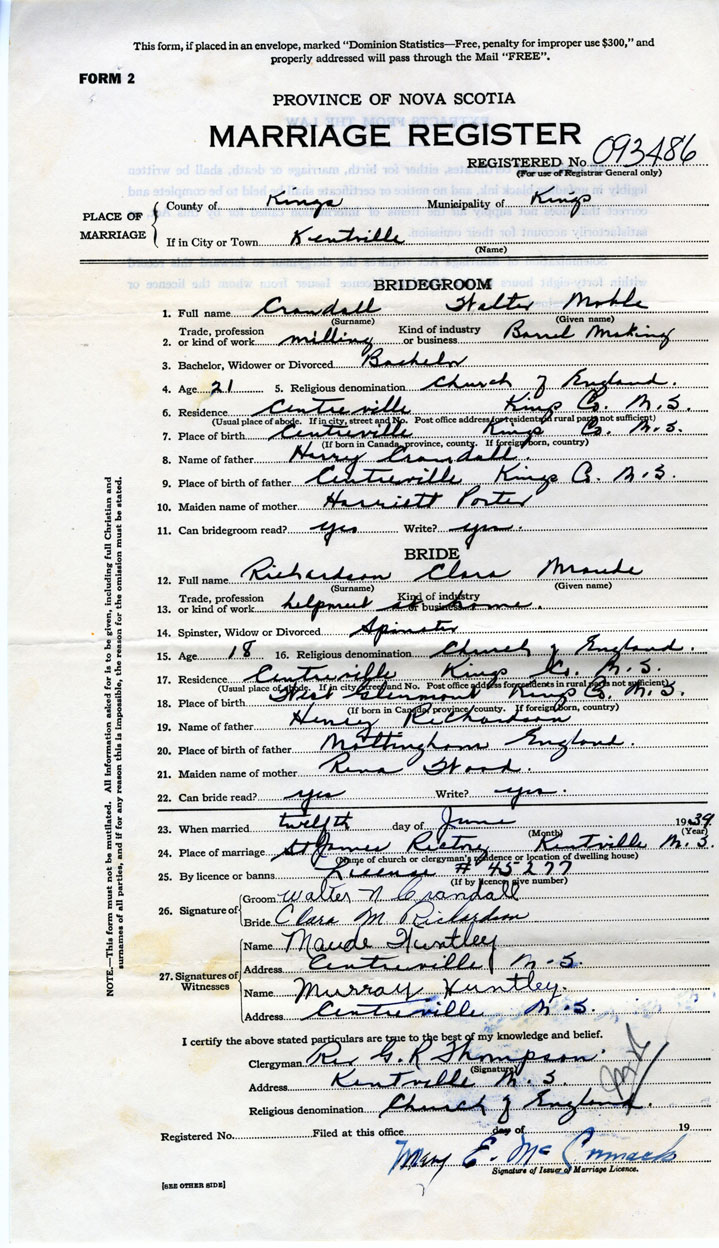 This form, if placed in an envelope, marked "Dominion Statistics—Free, penalty for improper use $300," and
properly addressed will pass through the Mail "FREE".
FORM 2
PROVINCE OF NOVA SCOTIA
MARRIAGE REGISTER
REGISTERED No. 093486
(For use of Registrar General only)
PLACE OF MARRIAGE
County of Kings Municipality of Kings
If in City or Town Kentville
(Name)
BRIDEGROOM
1. Full name Crandall Walter Noble
(Surname) (Given name)
2. Trade, profession or kind of work milling Kind of industry or business Barrel Making
3. Bachelor, Widower or Divorced Bachelor
4. Age 21 5. Religious denomination Church of England.
6. Residence Centreville Kings Co. N.S.
(Usual place of abode. If in city, street and No. Post office address for residents in rural parts not sufficient)
7. Place of birth Centreville Kings Co. N.S.
(If born in Canada, province, county. If foreign born, country)
8. Name of father Harry Crandall.
9. Place of birth of father Centreville Kings Co. N.S.
10. Maiden name of mother Harriett Porter
11. Can bridegroom read? yes Write? yes.
BRIDE
12. Full name Richardson Clara Maude
(Surname) (Given name)
13. Trade, profession or kind of work helpmeet at home. Kind of industry or business
14. Spinster, Widow or Divorced Spinster
15. Age 18 16. Religious denomination Church of England.
17. Residence Centreville Kings Co. N.S.
(Usual place of abode. If in city, street and No. Post office address for residents in rural parts not sufficient)
18. Place of birth West Kings Co. N.S.
(If born in Canada, province, county. If foreign born, country)
19. Name of father Henry Richardson
20. Place of birth of father Nottingham England.
21. Maiden name of mother Rena Wood.
22. Can bride read? yes Write? yes.
23. When married twelfth day of June 1939
(Month) (Year)
24. Place of marriage St James Rectory Kentville N.S.
(Name of church or clergyman's residence or location of dwelling house)
25. By licence or banns License # 45277
(If by licence give number)
26. Signature of
Groom Walter N Crandall
Bride Clara M Richardson
27. Signatures of Witnesses
Name Maude Huntley
Address Centreville N.S.
Name Murray Huntley.
Address Centreville N.S.
I certify the above stated particulars are true to the best of my knowledge and belief.
Clergyman Rev G. R Thompson.
(Signature)
Address Kentville N.S.
Religious denomination Church of England.
Registered No. Filed at this office day of 19
Mary E. McCormack
Signature of Issuer of Marriage Licence.
[SEE OTHER SIDE]
NOTE.—This form must not be mutilated. All information asked for is to be given, including full Christian and
surnames of all parties, and if for any reason this is impossible, the reason for the omission must be stated.